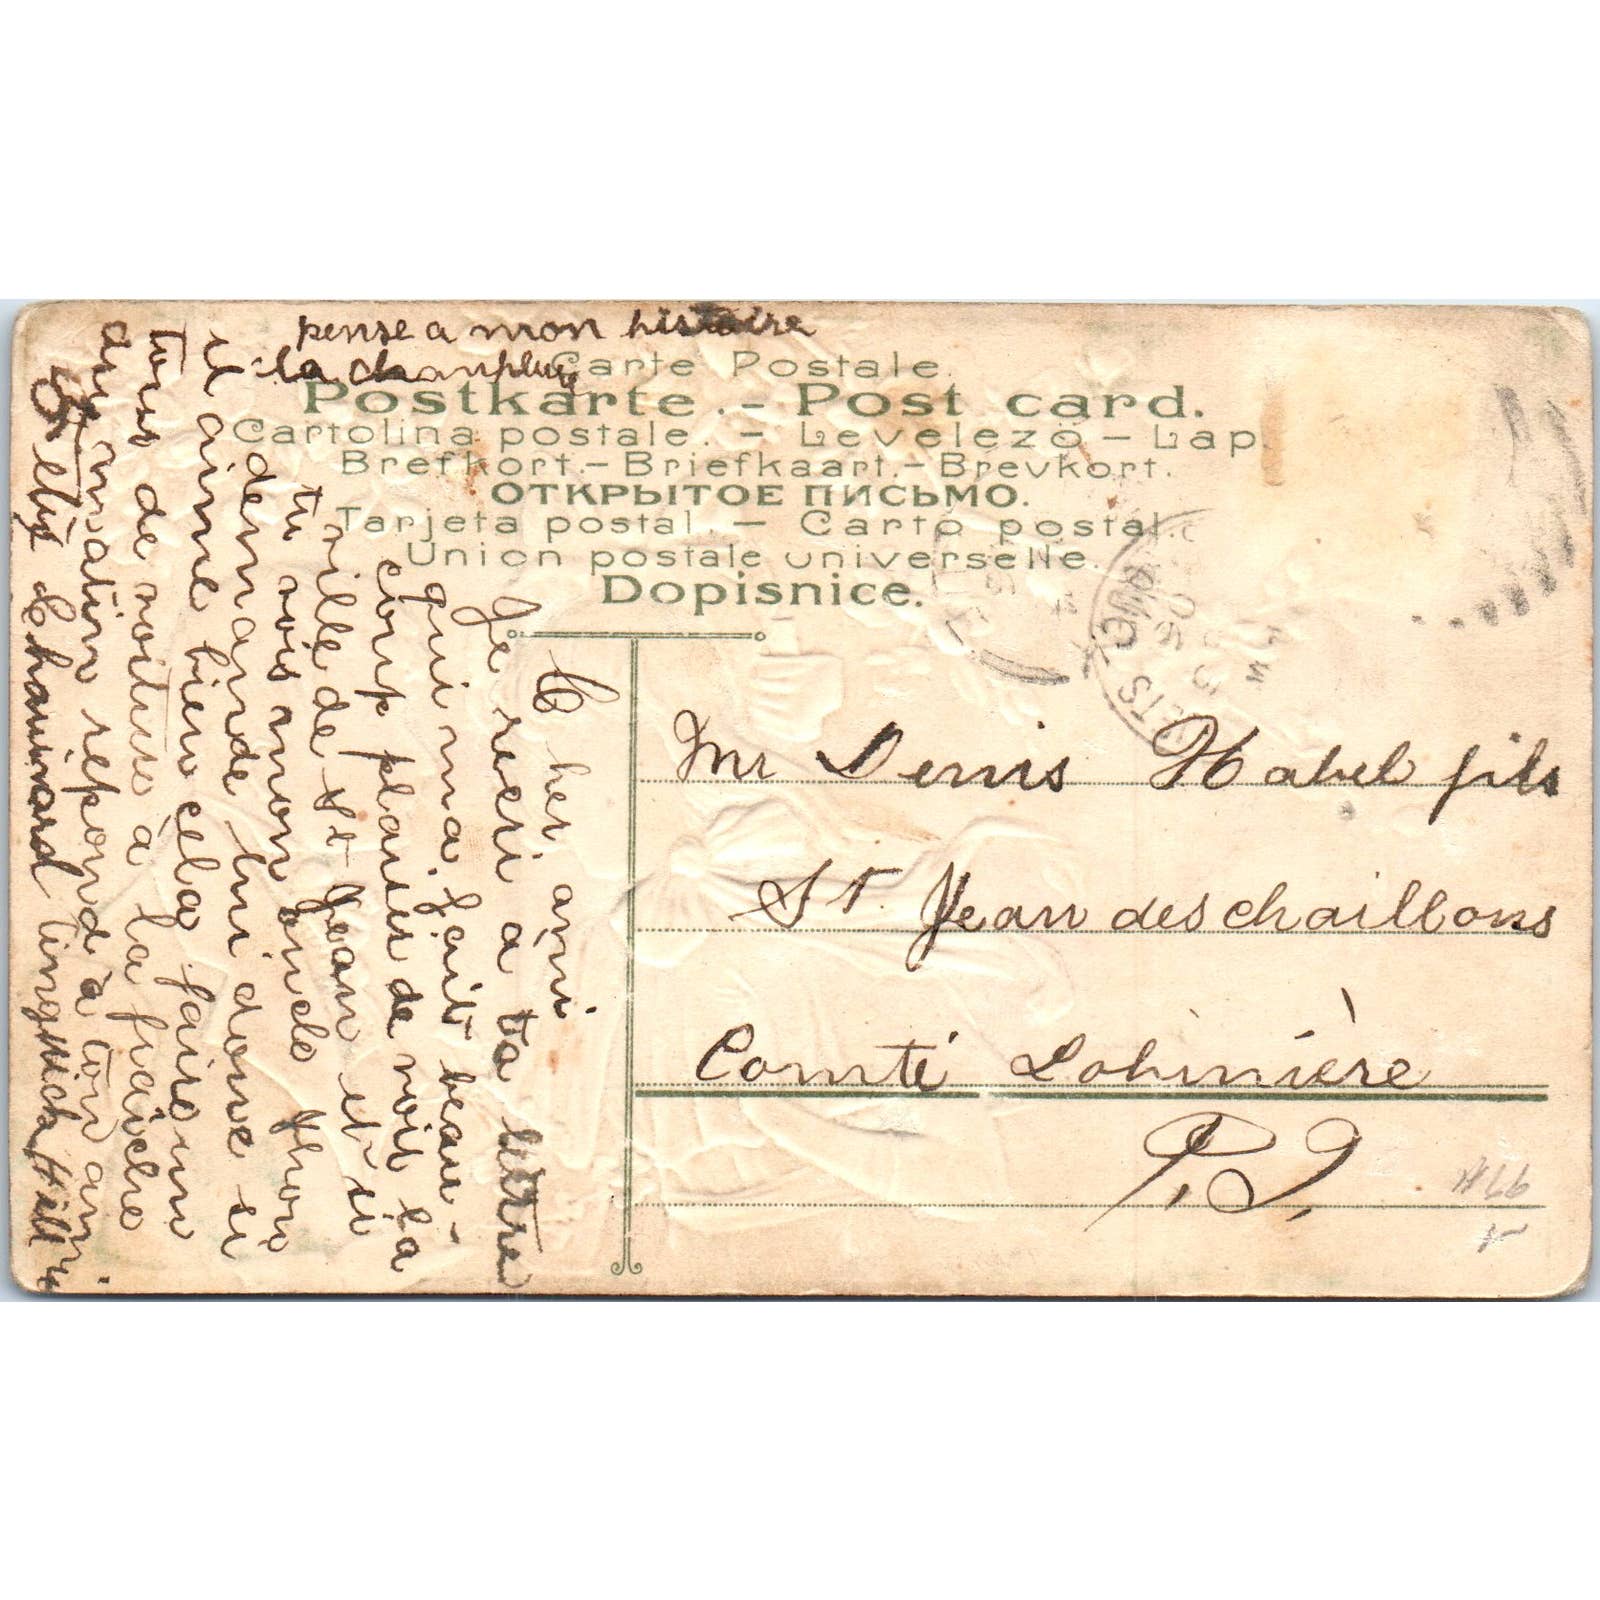 pense a mon histoire
la
Carte Postale.
Postkarte. - Post card.
Cartolina postale. - Levelezö - Lap.
Brefkort. - Briefkaart. - Brevkort.
ОТКРЫТОЕ ПИСЬМО.
Tarjeta postal. - Carto postal.
Union postale universelle.
Dopisnice.
Cher ami
Je reseri a ta lettre
qui ma fait beau-
coup plaisir de voir la
ville de St Jean et si
tu vois mon oncle
demande lui donc si
il aime bien cela faire un
tour de voiture à la
reponds à ton ami
Mr Denis Habel fils
St. Jean deschaillons
Comté Lobinière
P. Q.